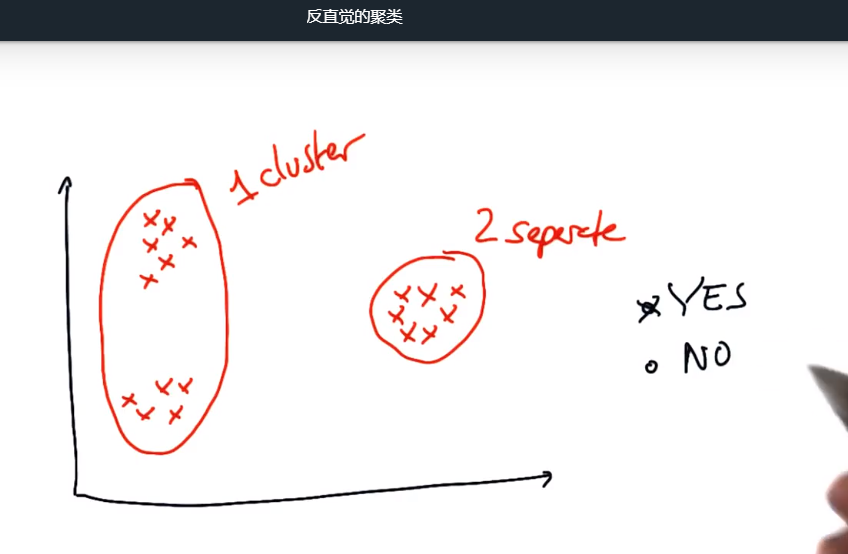 反直觉的聚类
1 cluster
2 seperate
YES
NO